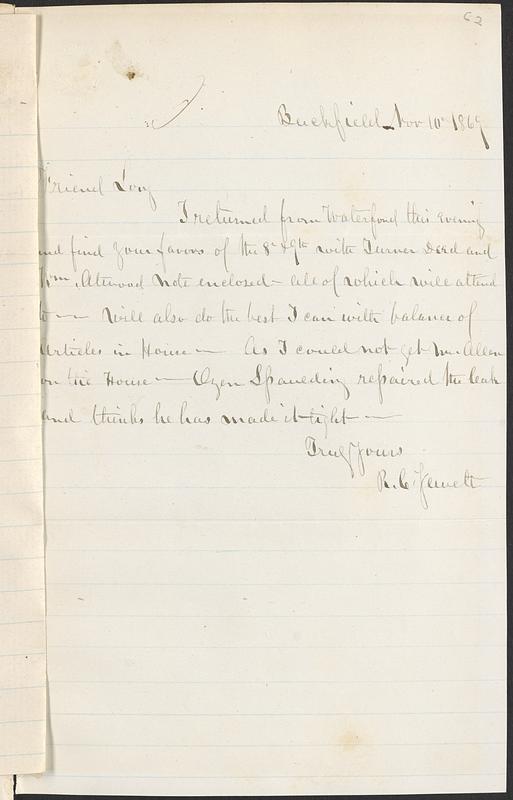 62
Buckfield Nov 10th 1869
Friend Long
I returned from Waterford this Evening
and find your favors of the 8th & 9th with Turner Deed and
Wm. Atwood Note enclosed - all of which will attend
to - will also do the best I can with balance of
articles in House - As I could not get Mr Allen
on the House - Ozen Spaulding repaired the leak
and thinks he has made it tight -
Truly Yours
R. C. Jewett